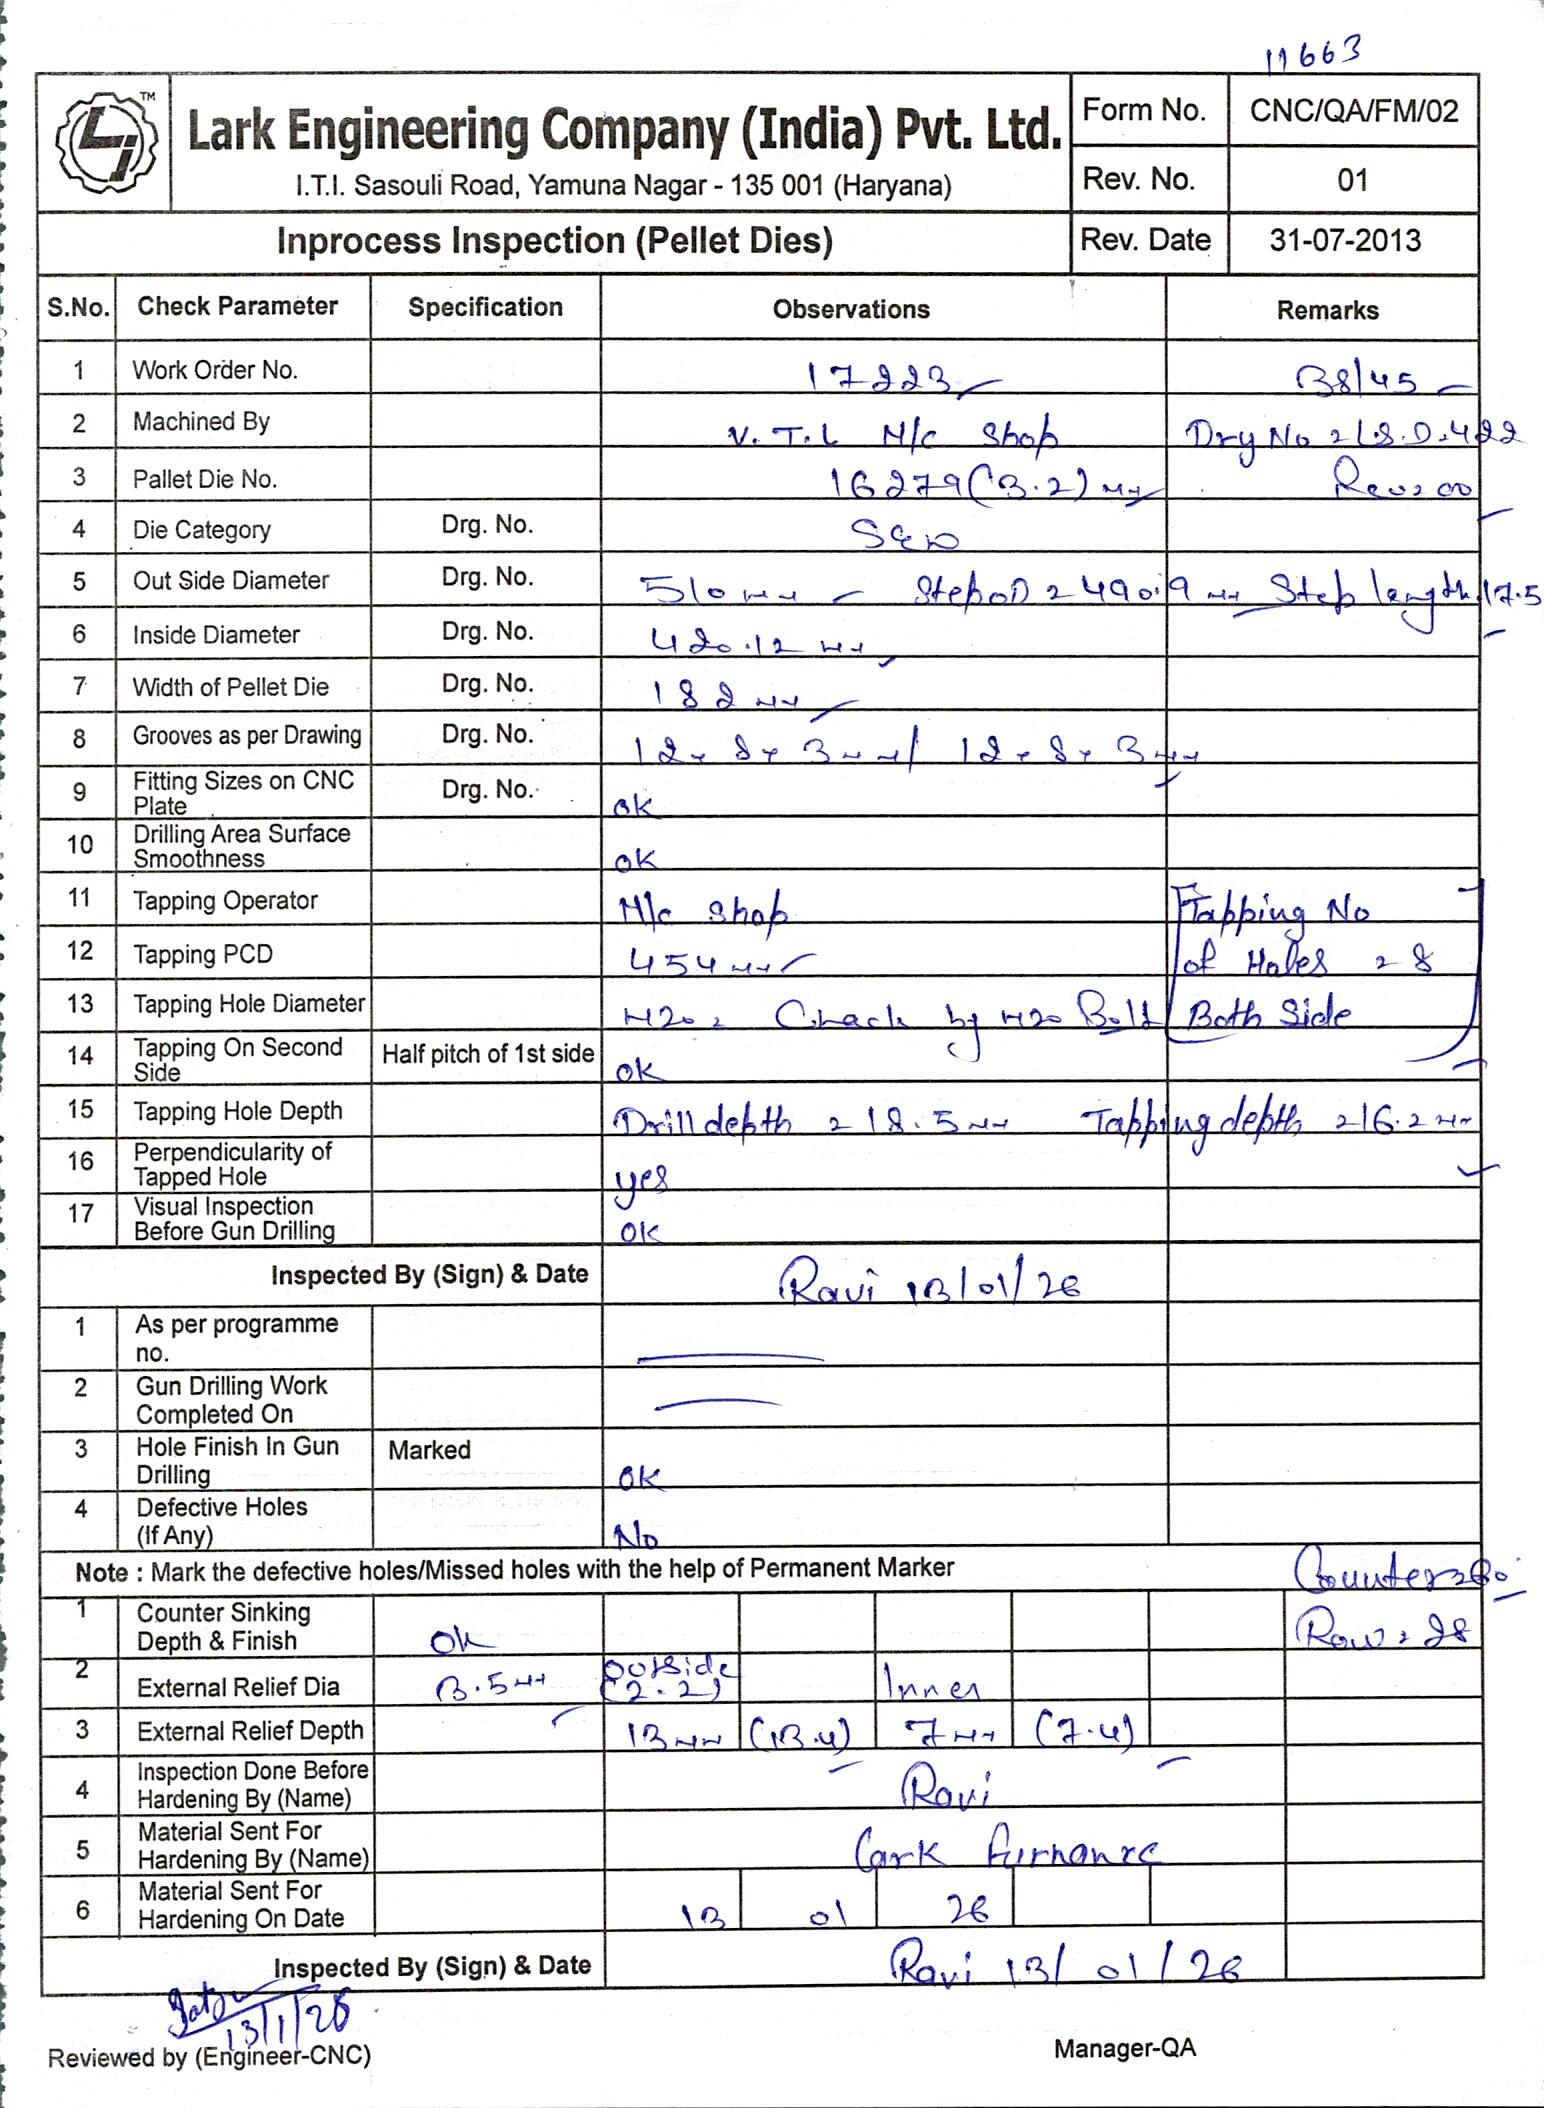 11663
TM
Lark Engineering Company (India) Pvt. Ltd.
I.T.I. Sasouli Road, Yamuna Nagar - 135 001 (Haryana)
Form No. CNC/QA/FM/02
Rev. No. 01
Inprocess Inspection (Pellet Dies) Rev. Date 31-07-2013
S.No. Check Parameter Specification Observations Remarks
1 Work Order No. 17223 38/45
2 Machined By V.T.L M/c Shop Drg No = L.S.D.422
3 Pallet Die No. 16279 (3.2) mm Rev=00
4 Die Category Drg. No.
5 Out Side Diameter Drg. No. 510 mm Step OD = 490.9 mm Step length 17.5
6 Inside Diameter Drg. No. 420.12 mm
7 Width of Pellet Die Drg. No. 182 mm
8 Grooves as per Drawing Drg. No. 12 x 8 x 3 mm / 12 x 8 x 3 mm
9 Fitting Sizes on CNC Plate Drg. No. ok
10 Drilling Area Surface Smoothness ok
11 Tapping Operator M/c Shop Tapping No
12 Tapping PCD 454 mm of Holes = 8
13 Tapping Hole Diameter M20 = Check by M20 Bolt Both Side
14 Tapping On Second Side Half pitch of 1st side ok
15 Tapping Hole Depth Drill depth = 18.5 mm Tapping depth = 16.2 mm
16 Perpendicularity of Tapped Hole yes
17 Visual Inspection Before Gun Drilling ok
Inspected By (Sign) & Date Ravi 13/01/26
1 As per programme no.
2 Gun Drilling Work Completed On
3 Hole Finish In Gun Drilling Marked ok
4 Defective Holes (If Any) No
Note : Mark the defective holes/Missed holes with the help of Permanent Marker
1 Counter Sinking Depth & Finish ok Row = 28
2 External Relief Dia 3.5 mm Outside (2.2) Inner
3 External Relief Depth 13 mm (13.4) 7 mm (7.4)
4 Inspection Done Before Hardening By (Name) Ravi
5 Material Sent For Hardening By (Name) Lark furnance
6 Material Sent For Hardening On Date 13 01 26
Inspected By (Sign) & Date Ravi 13/01/26
13/1/26
Reviewed by (Engineer-CNC) Manager-QA